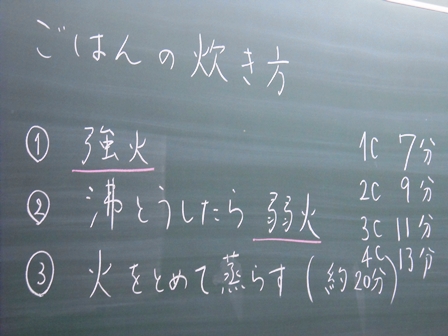 ごはんの炊き方
① 強火
② 沸とうしたら弱火
③ 火をとめて蒸らす(約20分)
1C 7分
2C 9分
3C 11分
4C 13分